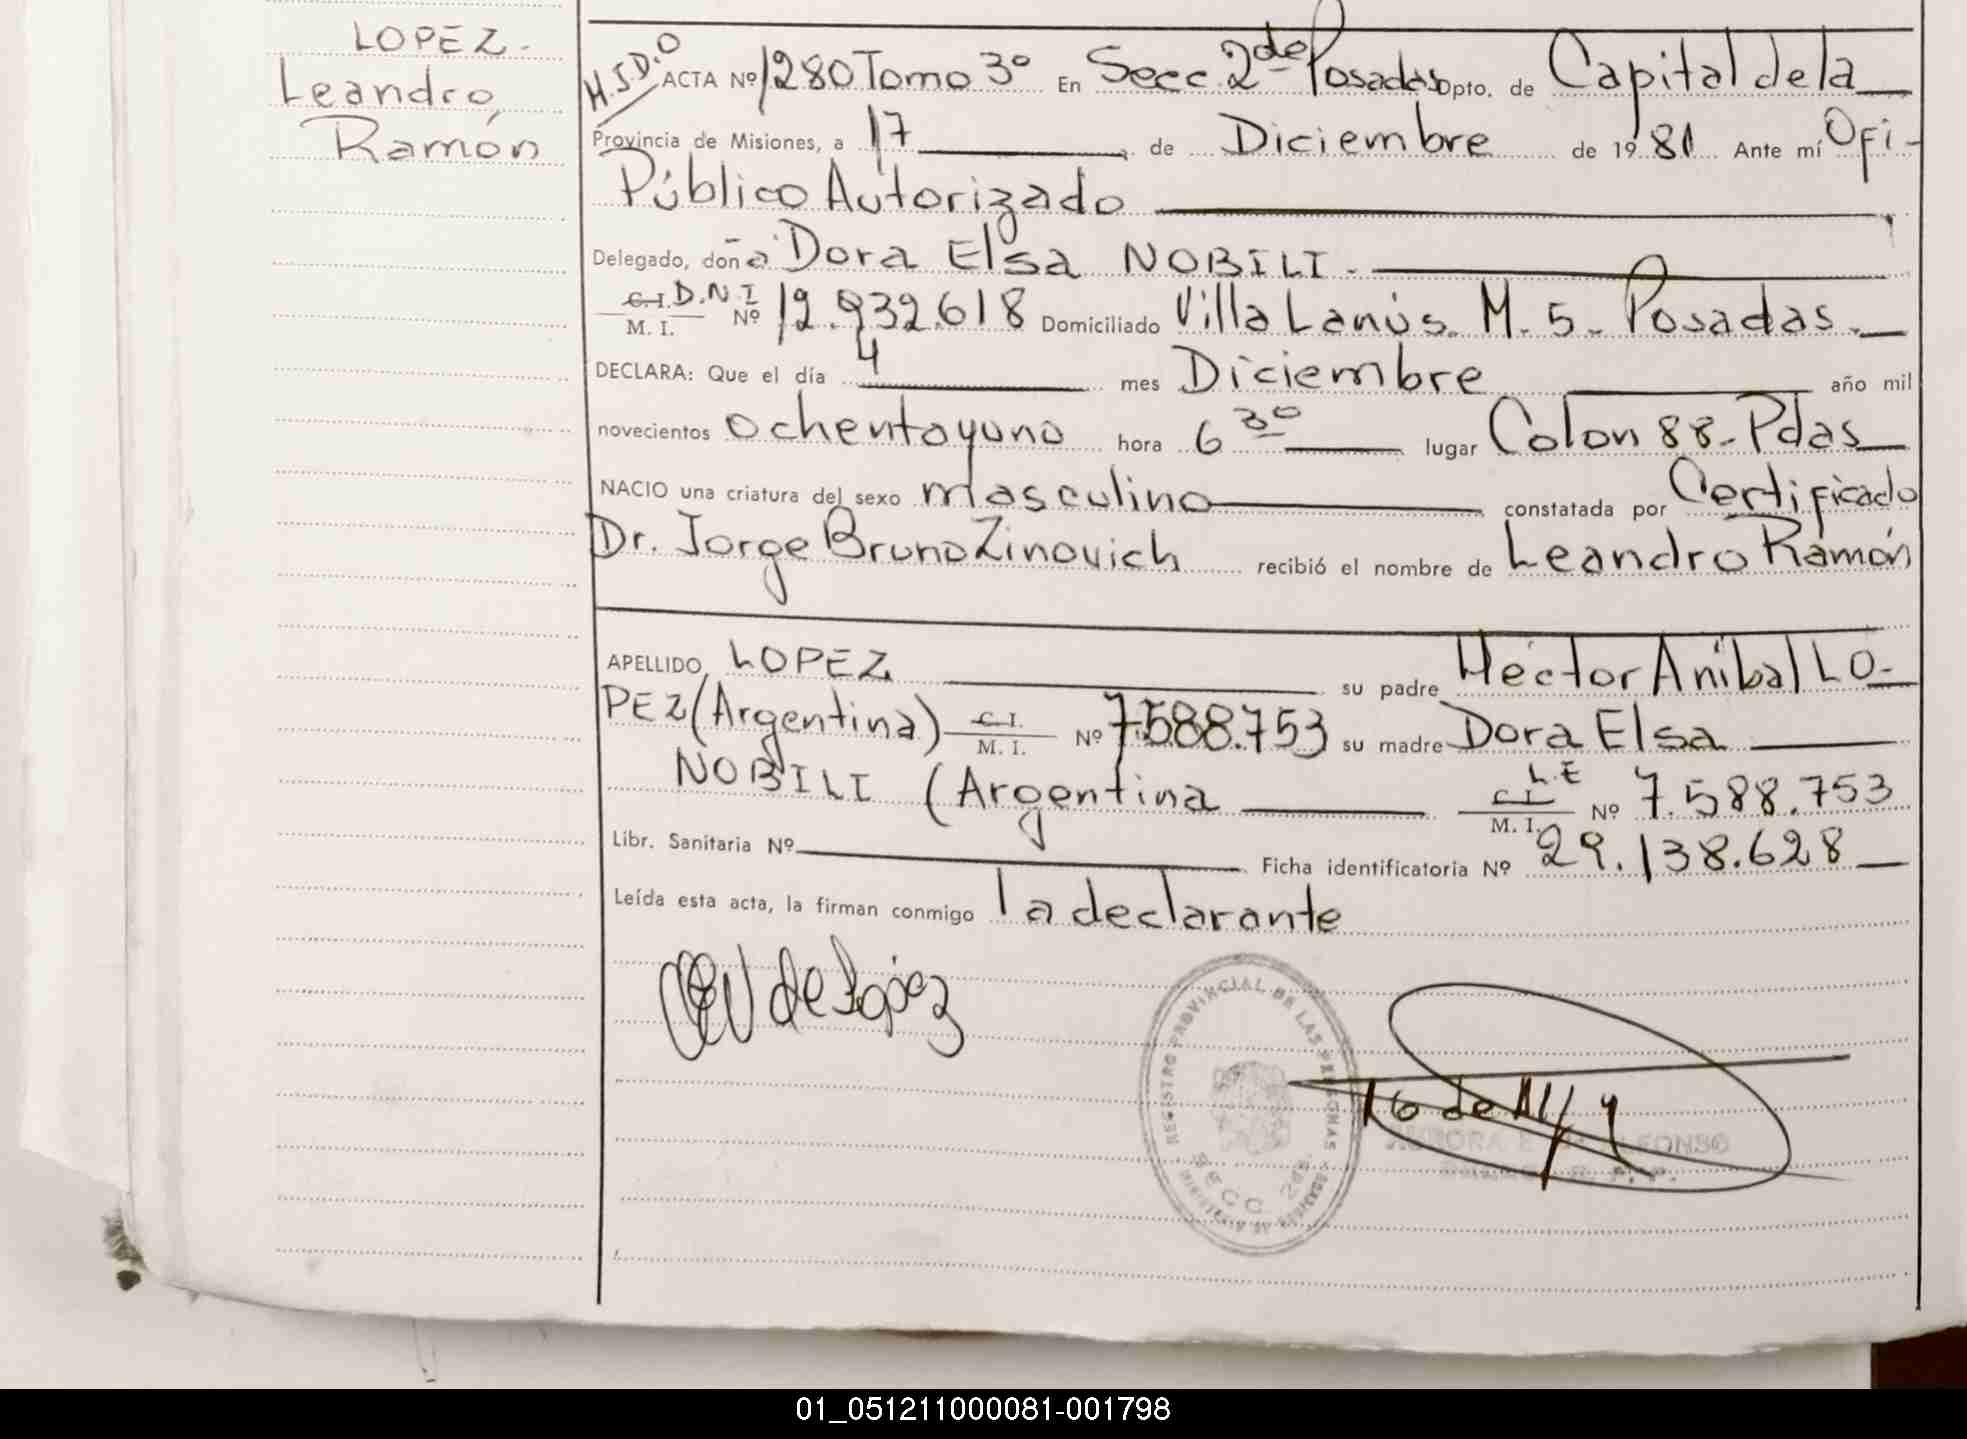 LOPEZ-
Leandro,
Ramón
H.J.D.O
ACTA Nº 1280 Tomo 3º En Secc. 2da Posadas Dpto. de Capital de la
Provincia de Misiones, a 17 de Diciembre de 1981 Ante mí Ofi-
Público Autorizado
Delegado, doña Dora Elsa NOBILI.
C.I. D.N.I
M. I. Nº 12.932.618 Domiciliado Villa Lanús. M. 5- Posadas.
DECLARA: Que el día 4 mes Diciembre año mil
novecientos ochentayuno hora 6 30 lugar Colon 88- Pdas
NACIO una criatura del sexo masculino constatada por Certificado
Dr. Jorge Bruno Zinovich recibió el nombre de Leandro Ramón
APELLIDO LOPEZ su padre Héctor Anibal LO-
PEZ (Argentina) C.I. M. I. Nº 7.588.753 su madre Dora Elsa
NOBILI (Argentina C.I. L.E M. I. Nº 7.588.753
Libr. Sanitaria Nº Ficha identificatoria Nº 29.138.628
Leída esta acta, la firman conmigo la declarante
de López
REGISTRO PROVINCIAL DE LAS PERSONAS
SECC 2da.
01_051211000081-001798